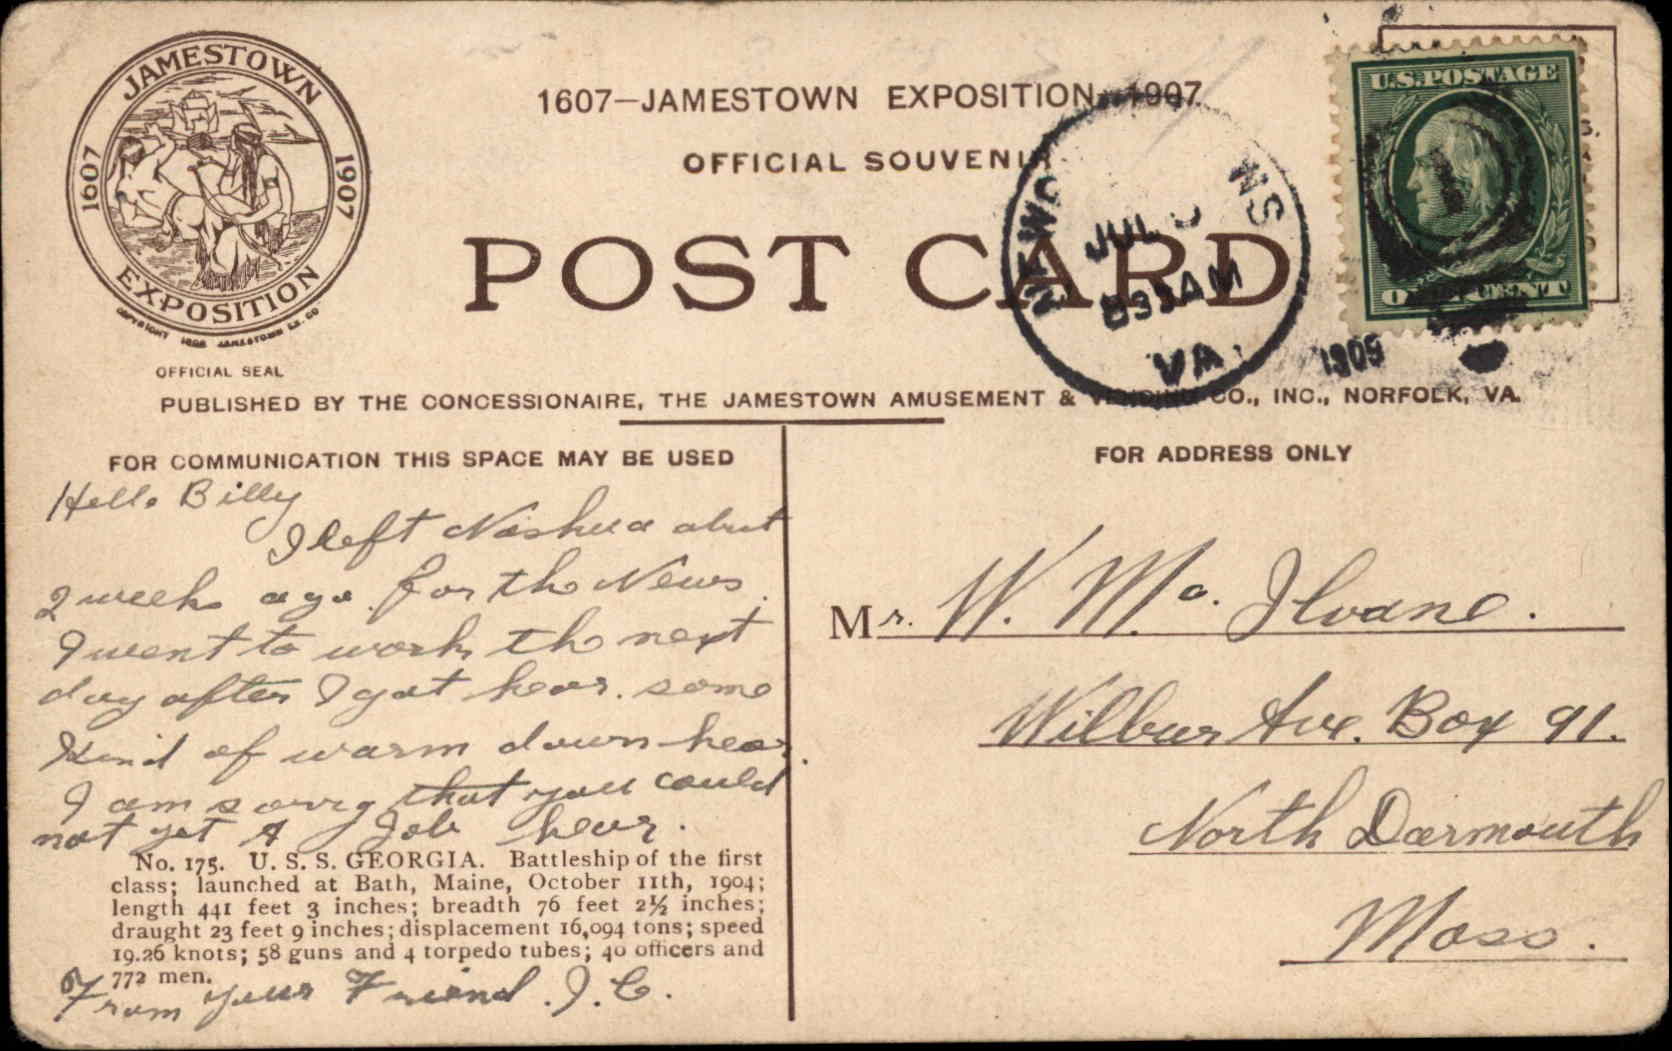 JAMESTOWN
1607 1907
EXPOSITION
COPYRIGHT 1906 JAMESTOWN EX. CO
OFFICIAL SEAL
1607—JAMESTOWN EXPOSITION—1907
OFFICIAL SOUVENIR
POST CARD
U.S. POSTAGE
ONE CENT
NEWPO NS
JUL
8 35 AM
VA.
1909
PUBLISHED BY THE CONCESSIONAIRE, THE JAMESTOWN AMUSEMENT & VENDING CO., INC., NORFOLK, VA.
FOR COMMUNICATION THIS SPACE MAY BE USED
Hello Billy
I left Nashua abut
2 weeks ago for the News.
I went to work the next
day after I got hear. some
Kind of warm down hear.
I am sorry that you could
not get A Job hear.
No. 175. U. S. S. GEORGIA. Battleship of the first
class; launched at Bath, Maine, October 11th, 1904;
length 441 feet 3 inches; breadth 76 feet 2½ inches;
draught 23 feet 9 inches; displacement 16,094 tons; speed
19.26 knots; 58 guns and 4 torpedo tubes; 40 officers and
772 men.
From your Friend. J. C.
FOR ADDRESS ONLY
Mr. W. Mc. Ilvane.
Wilbur Ave. Box 91.
North Darmouth
Mass.